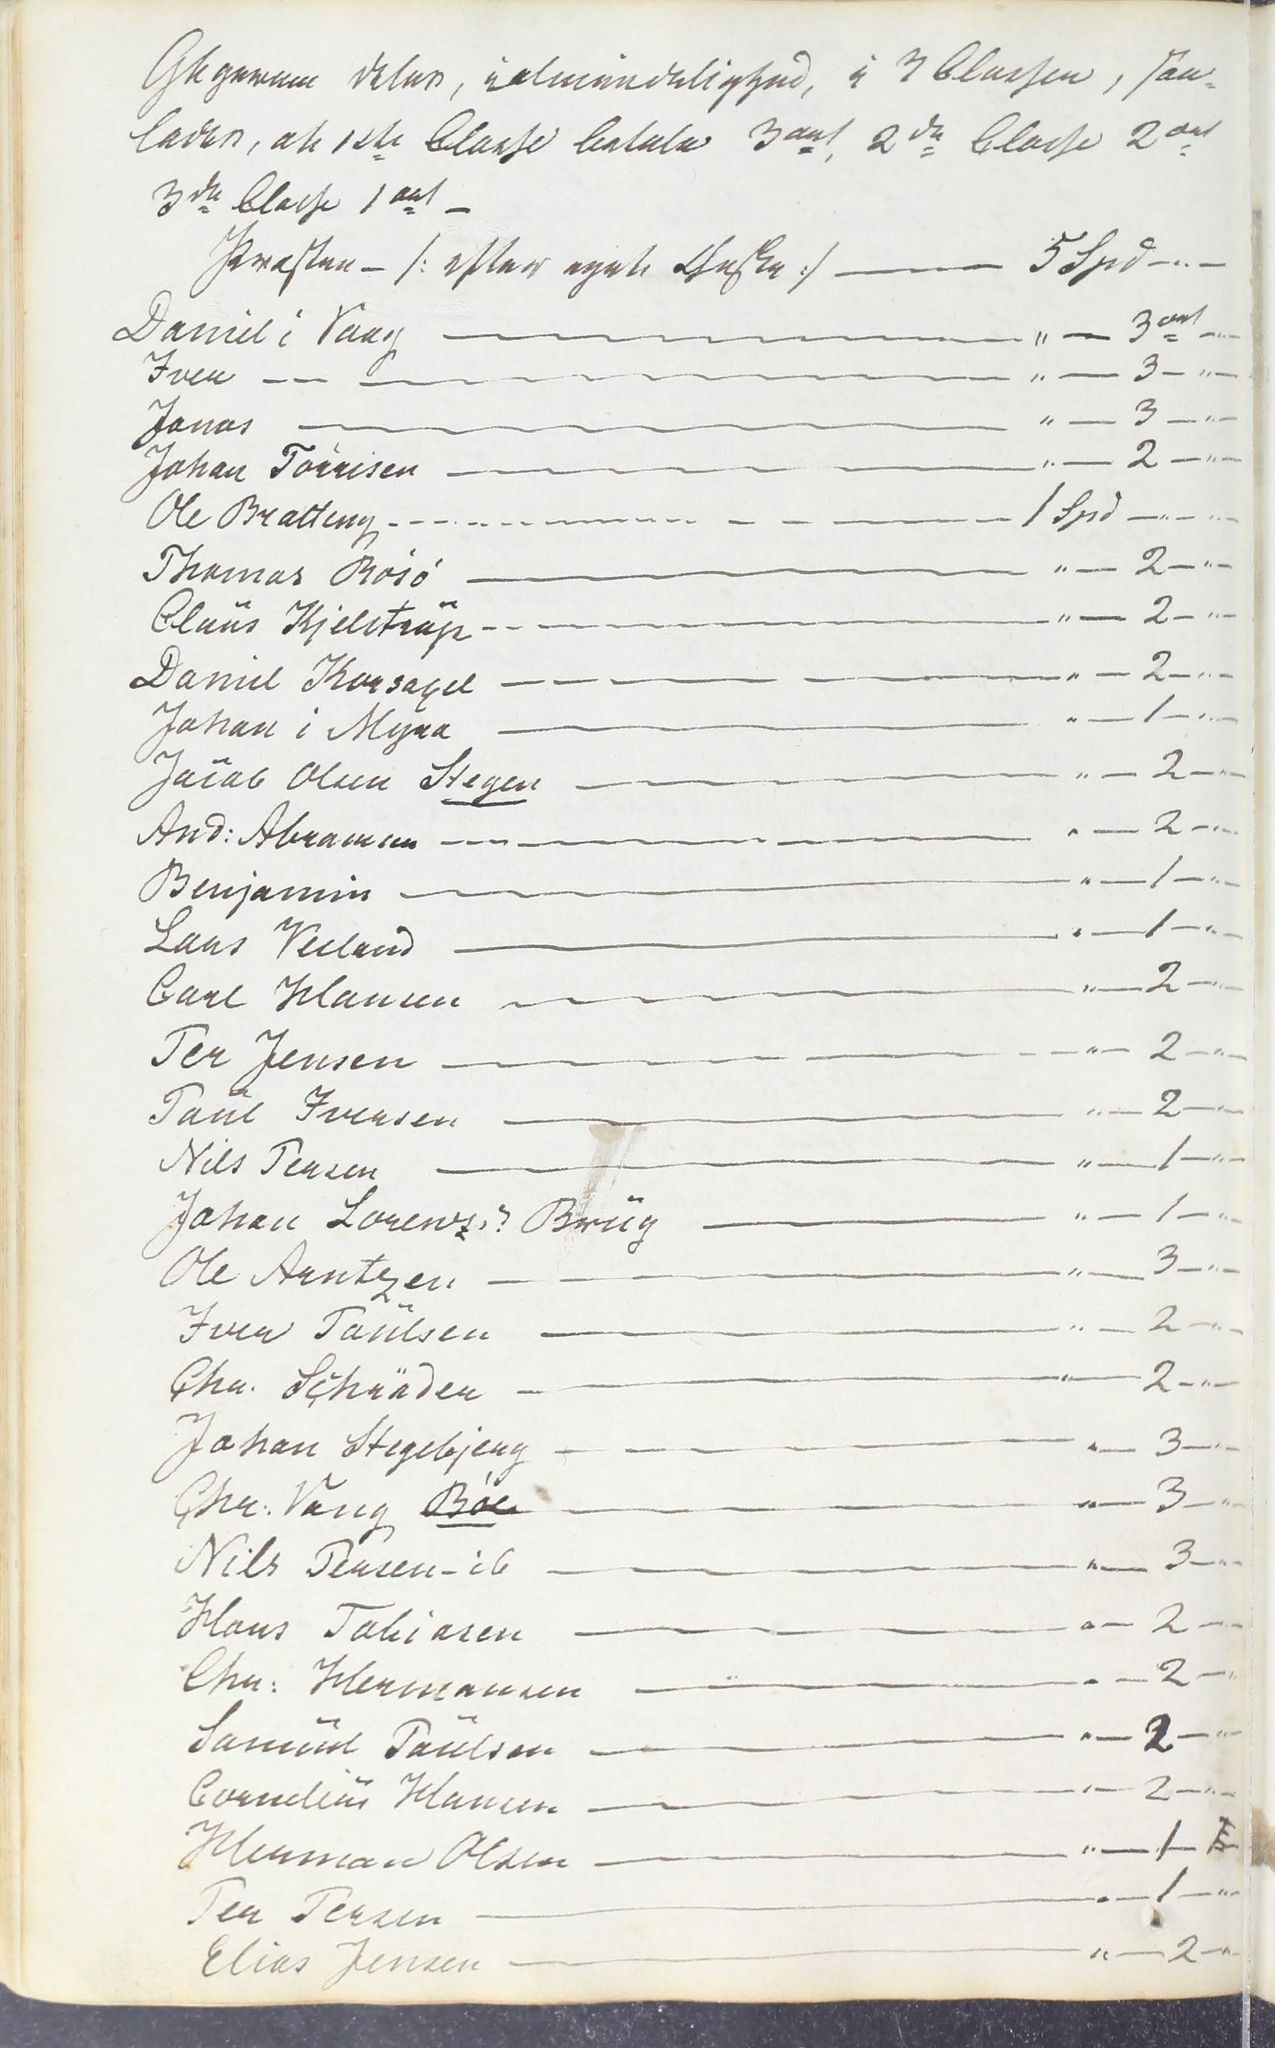 deles, i almindelighed, i 3 Classer, saa-
ledes, at 1ste Classe betale 3 ort, 2den Classe 2 ort
3die Classe 1 ort –
Præsten – /: efter eget Ønske :/ — 5 Spd – " –
Daniel i Vaag — " — 3 ort – " –
Iver — " — 3 – " –
Jonas — " — 3 – " –
Johan Törrisen — " — 2 – " –
Ole Bratteng — 1 Spd – " – " –
Thomas Rösö — " — 2 – " –
Claus Kjelstrup — " — 2 – " –
Daniel Korsagel — " — 2 – " –
Johan i Myra — " — 1 – " –
Jacob Olsen Stegen — " — 2 – " –
And: Abramsen — " — 2 – " –
Benjamin — " — 1 – " –
Lars Veiland — " — 1 – " –
Carl Hansen — " — 2 – " –
Per Jensen — " — 2 – " –
Paul Iversen — " — 2 – " –
Nils Persen — " — 1 – " –
Johan Lorenz.? Brug — " — 1 – " –
Ole Arntzen — " — 3 – " –
Iver Paulsen — " — 2 – " –
Chr. Schräder — " — 2 – " –
Johan Stegebjerg — " — 3 – " –
Chr: Vang Böe — " — 3 – " –
Nils Persen – ib — " — 3 – " –
Hans Tobiasen — " — 2 – " –
Chr: Hermansen — " — 2 – " –
Samuel Paulsen — " — 2 – " –
Cornelius Hansen — " — 2 – " –
Herman Olsen — " — 1 –
Per Persen — " — 1 – " –
Elias Jensen — " — 2 – " –